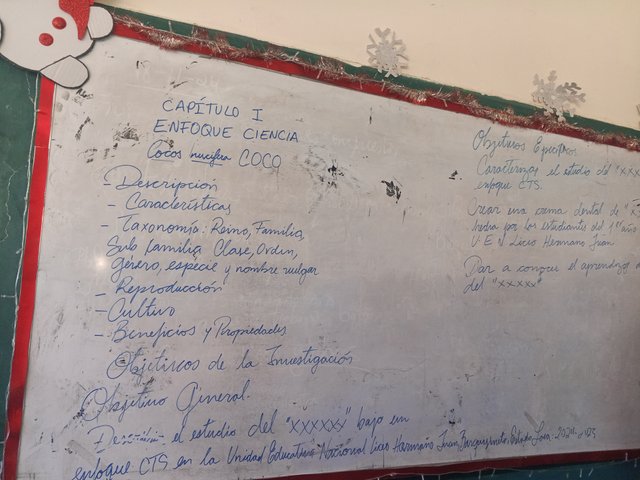 CAPÍTULO I
ENFOQUE CIENCIA
Cocos nucifera COCO
- Descripción
- Características
- Taxonomía: Reino, Familia,
Sub familia, Clase, Orden,
género, especie y nombre vulgar
- Reproducción
- Cultivo
- Beneficios y Propiedades
Objetivos de la Investigación
Objetivo General.
el estudio del "XXXXXX" bajo un
enfoque CTS en la Unidad Educativa Nacional Liceo Hermano Juan Barquisimeto Estado Lara.
Objetivos
Caracterizar el estudio del "XXX
enfoque CTS.
Crear una crema dental de "X
hecha por los estudiantes del 1er año
U.E.N Liceo Hermano Juan
Dar a conocer el aprendizaje
del "XXXXX"